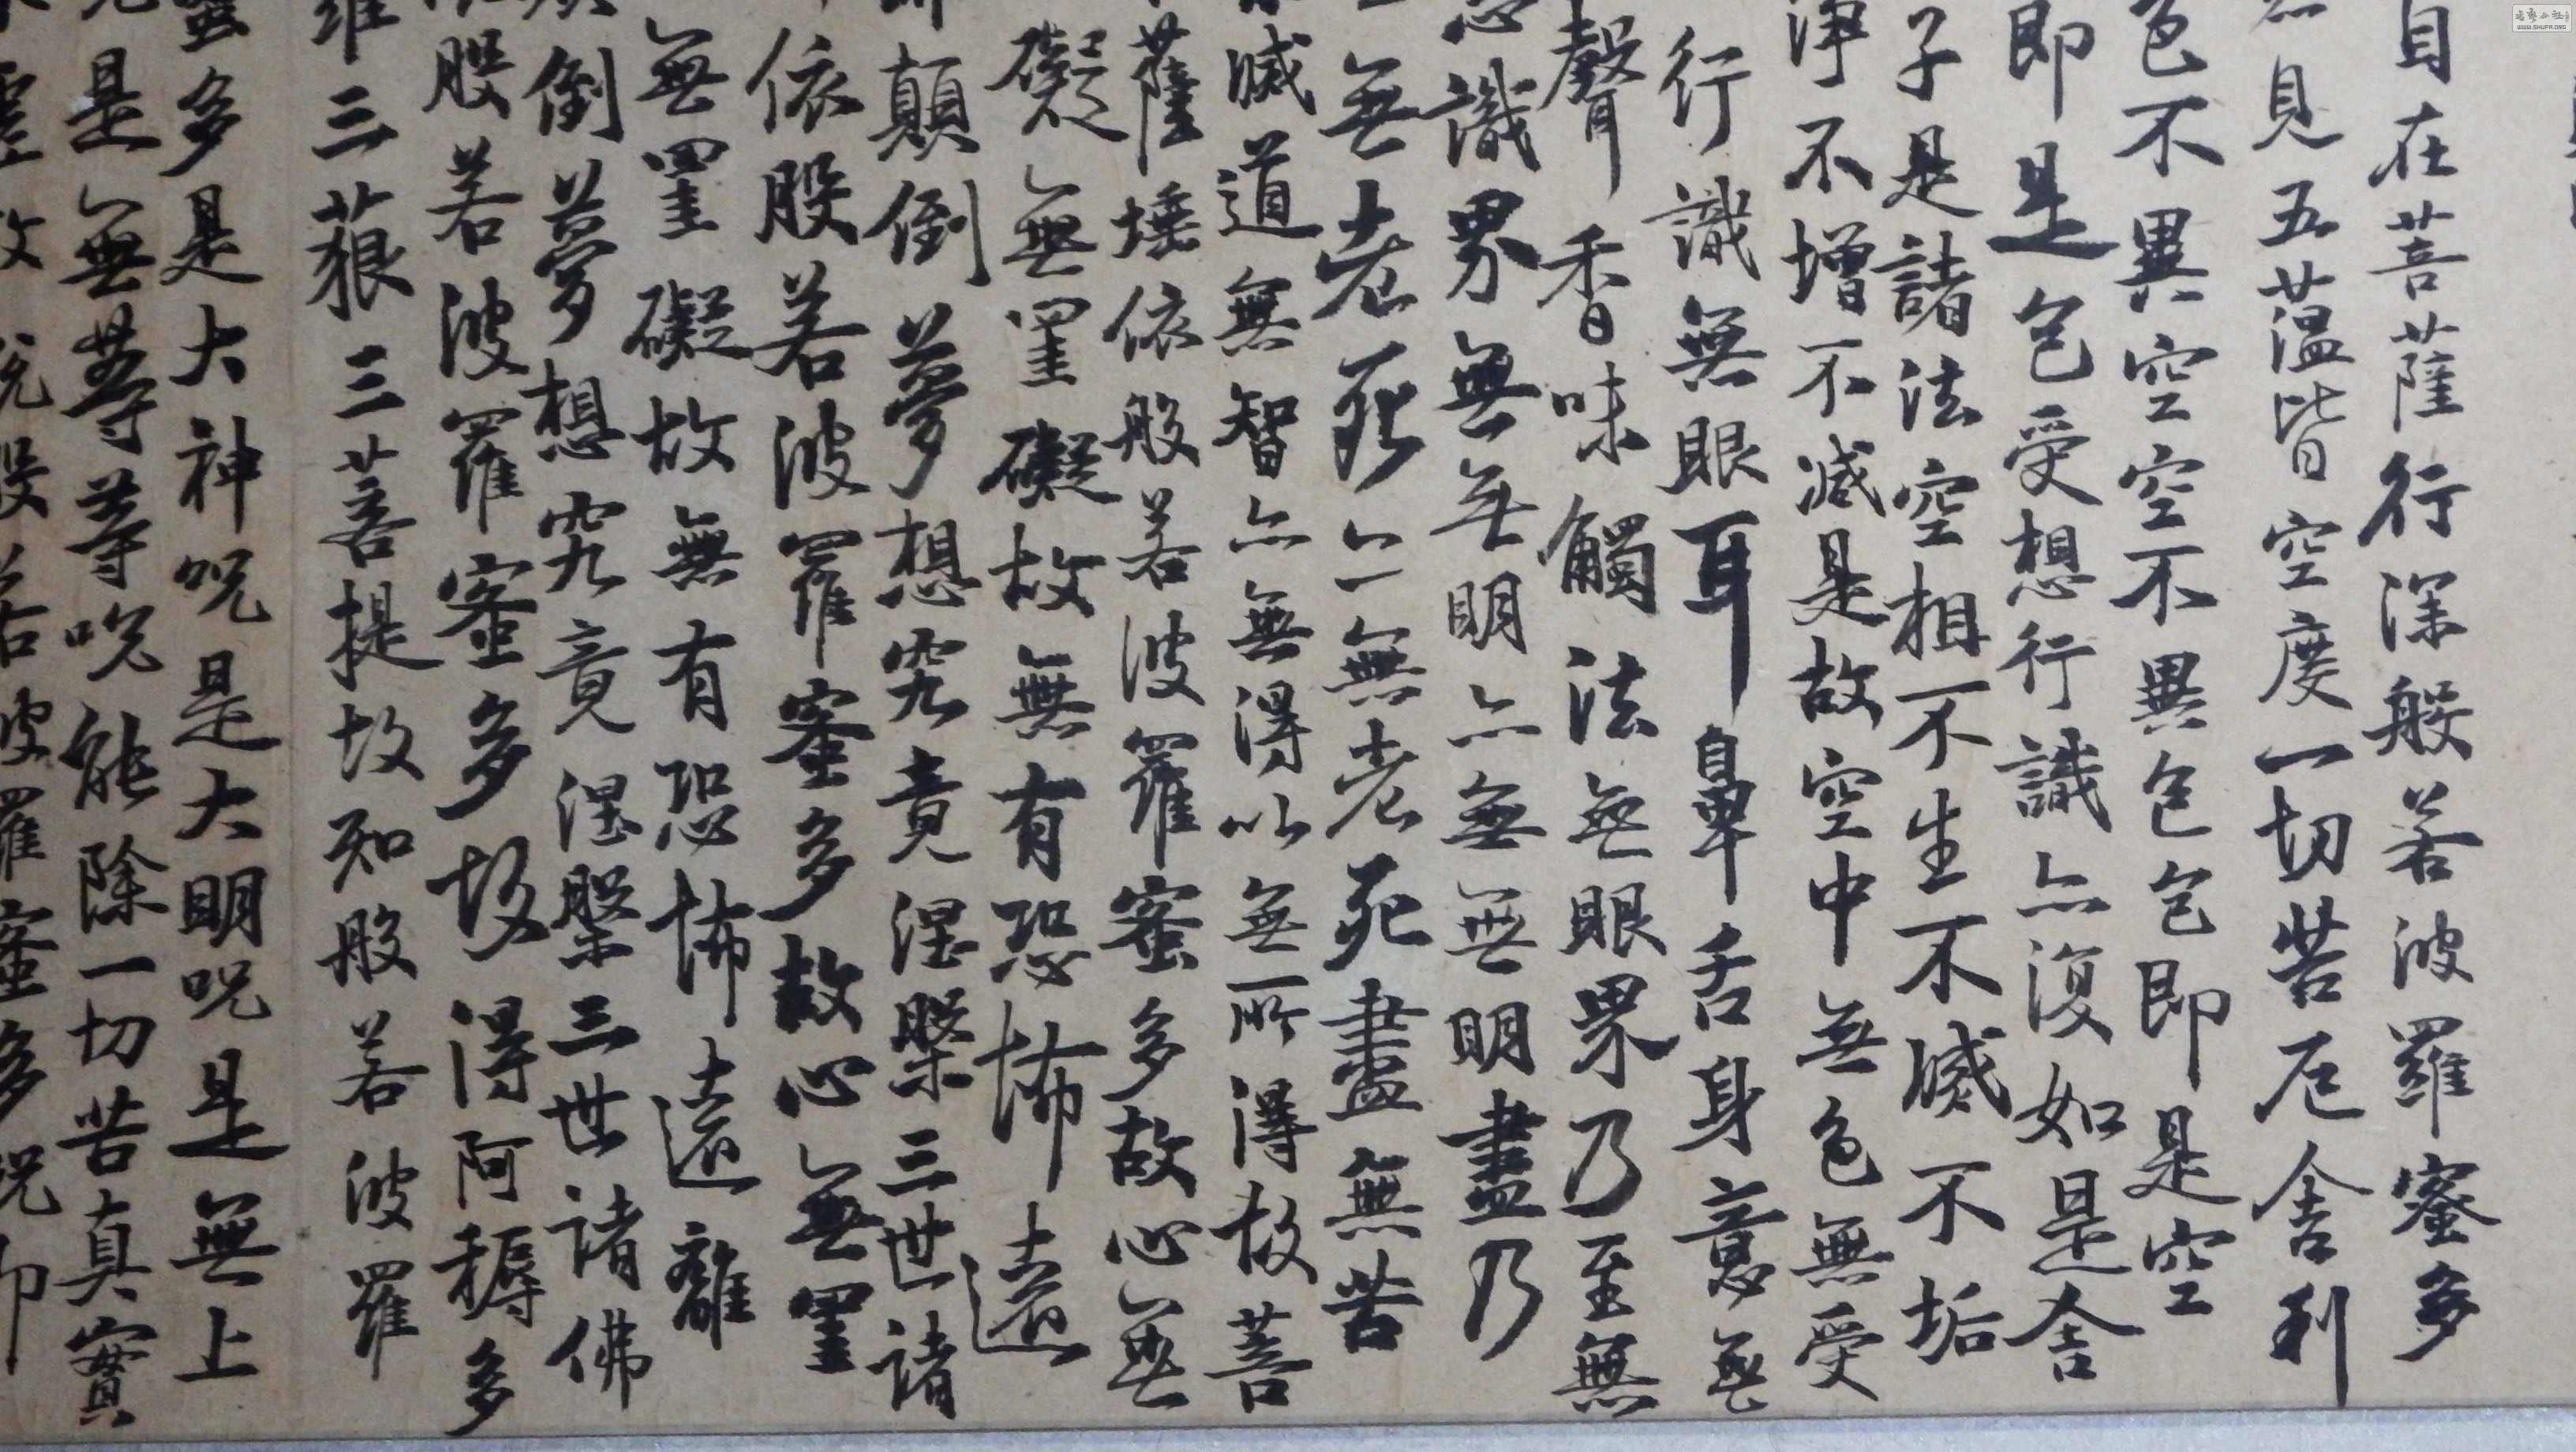 自在菩薩行深般若波羅蜜多
見五蘊皆空度一切苦厄舍利
色不異空空不異色色即是空
即是色受想行識亦復如是舍
子是諸法空相不生不滅不垢
淨不增不減是故空中無色無受
行識無眼耳鼻舌身意無
聲香味觸法無眼界乃至無
識界無無明亦無無明盡乃
無老死亦無老死盡無苦
滅道無智亦無得以無所得故菩
薩埵依般若波羅蜜多故心無
礙無罣礙故無有恐怖遠
顛倒夢想究竟涅槃三世諸
依般若波羅蜜多故心無罣
無罣礙故無有恐怖遠離
倒夢想究竟涅槃三世諸佛
般若波羅蜜多故得阿耨多
羅三藐三菩提故知般若波羅
蜜多是大神咒是大明咒是無上
是無等等咒能除一切苦真實
故說般若波羅蜜多咒即
WWW.SHUFA.ORG